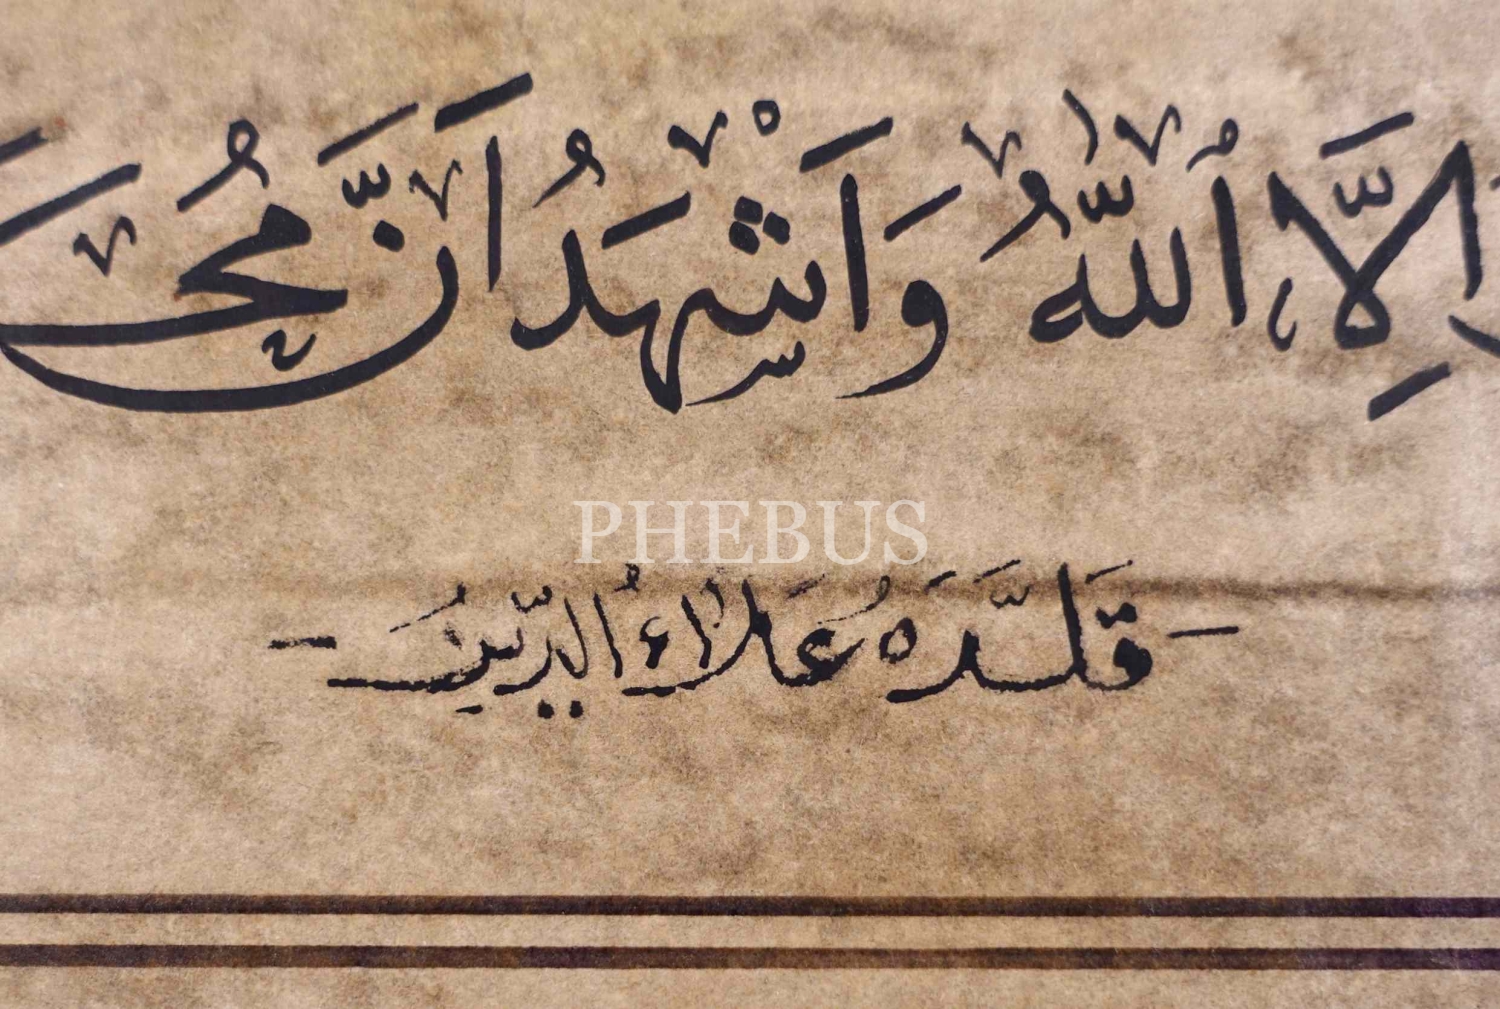 إِلَّا ٱللّٰهُ وَاَشْهَدُ اَنَّ
PHEBUS
- قَلَّدَهُ عَلَاءُ الدِّين -